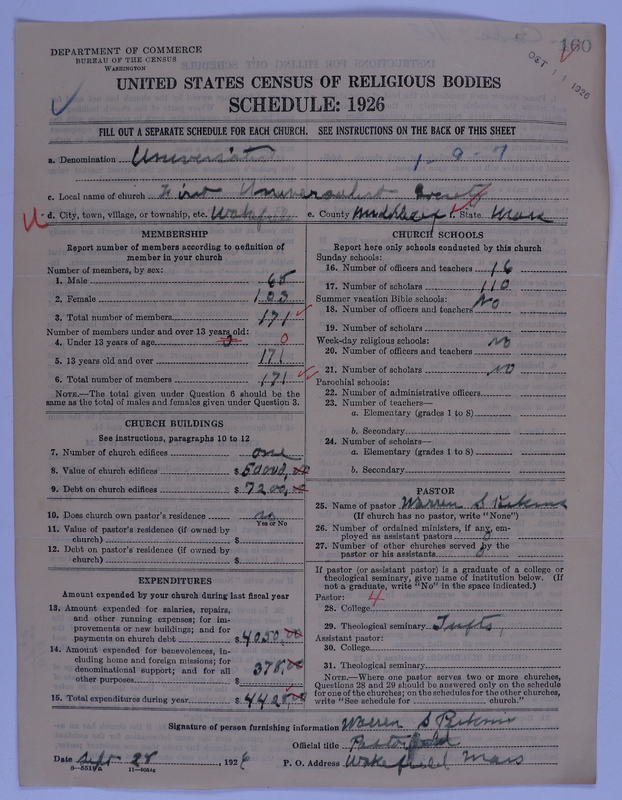 160
OCT 11 1926
DEPARTMENT OF COMMERCE
BUREAU OF THE CENSUS
WASHINGTON
UNITED STATES CENSUS OF RELIGIOUS BODIES
SCHEDULE: 1926
FILL OUT A SEPARATE SCHEDULE FOR EACH CHURCH. SEE INSTRUCTIONS ON THE BACK OF THIS SHEET
a. Denomination Universalist
1-9-7
c. Local name of church First Universalist Society
d. City, town, village, or township, etc. Wakefield e. County Middlesex f. State Mass
MEMBERSHIP
Report number of members according to definition of
member in your church
Number of members, by sex:
1. Male 68
2. Female 103
3. Total number of members 171
Number of members under and over 13 years old:
4. Under 13 years of age 0 0
5. 13 years old and over 171
6. Total number of members 171
NOTE.—The total given under Question 6 should be
same as the total of males and females given under Question 3.
CHURCH BUILDINGS
See instructions, paragraphs 10 to 12
7. Number of church edifices one
8. Value of church edifices $ 50000,00
9. Debt on church edifices $ 7200,00
10. Does church own pastor's residence no
Yes or No
11. Value of pastor's residence (if owned by
church) $
12. Debt on pastor's residence (if owned by
church) $
EXPENDITURES
Amount expended by your church during last fiscal year
13. Amount expended for salaries, repairs,
and other running expenses; for im-
provements or new buildings; and for
payments on church debt $ 4050,00
14. Amount expended for benevolences, in-
cluding home and foreign missions; for
denominational support; and for all
other purposes $ 378,00
15. Total expenditures during year $ 4428,00
CHURCH SCHOOLS
Report here only schools conducted by this church
Sunday schools:
16. Number of officers and teachers 16
17. Number of scholars 110
Summer vacation Bible schools:
18. Number of officers and teachers No
19. Number of scholars
Week-day religious schools:
20. Number of officers and teachers no
21. Number of scholars no
Parochial schools:
22. Number of administrative officers
23. Number of teachers—
a. Elementary (grades 1 to 8)
b. Secondary
24. Number of scholars—
a. Elementary (grades 1 to 8)
b. Secondary
PASTOR
25. Name of pastor Warren S Perkins
(If church has no pastor, write "None")
26. Number of ordained ministers, if any, em-
ployed as assistant pastors
27. Number of other churches served by the
pastor or his assistants
If pastor (or assistant pastor) is a graduate of a college or
theological seminary, give name of institution below. (If
not a graduate, write "No" in the space indicated.)
Pastor: 4
28. College
29. Theological seminary Tufts,
Assistant pastor:
30. College
31. Theological seminary
NOTE.—Where one pastor serves two or more churches,
Questions 28 and 29 should be answered only on the schedule
for one of the churches; on the schedules for the other churches,
write "See schedule for church."
Signature of person furnishing information Warren S Perkins
Official title Pastor
Date Sept 28, 1926 P. O. Address Wakefield Mass
8—5519a 11—9024g